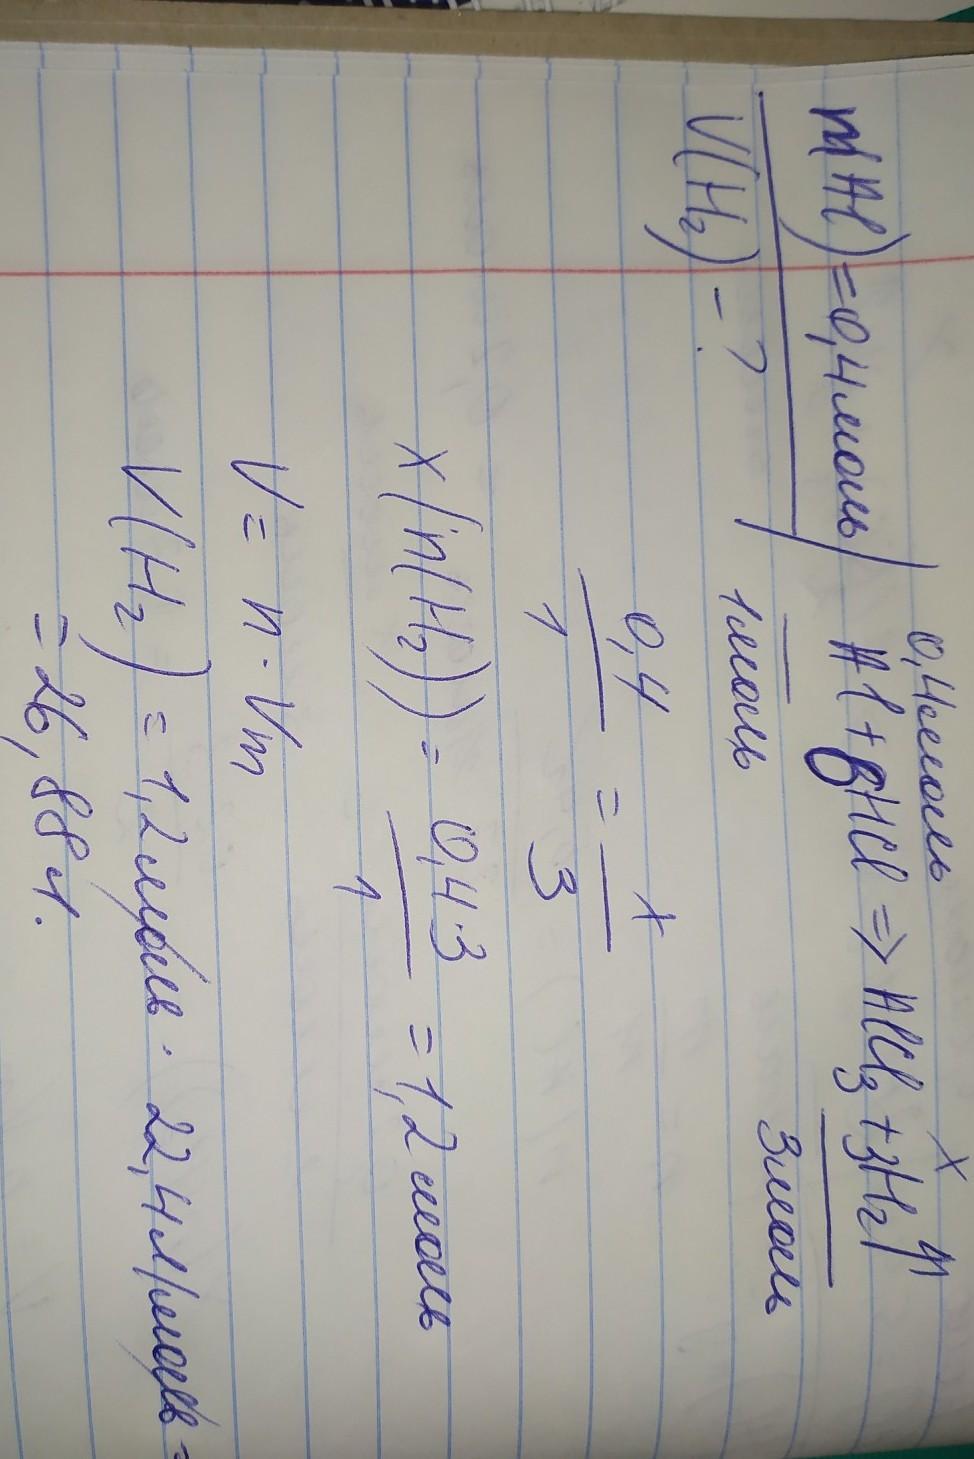 0,4моль x
n(Al)=0,4моль Al+6HCl => AlCl₃+3H₂↑
1моль 3моль
V(H₂) - ?
0,4/1 = x/3
x(n(H₂)) = 0,4·3/1 = 1,2моль
V = n · Vm
V(H₂) = 1,2моль · 22,4л/моль =
= 26,88л.